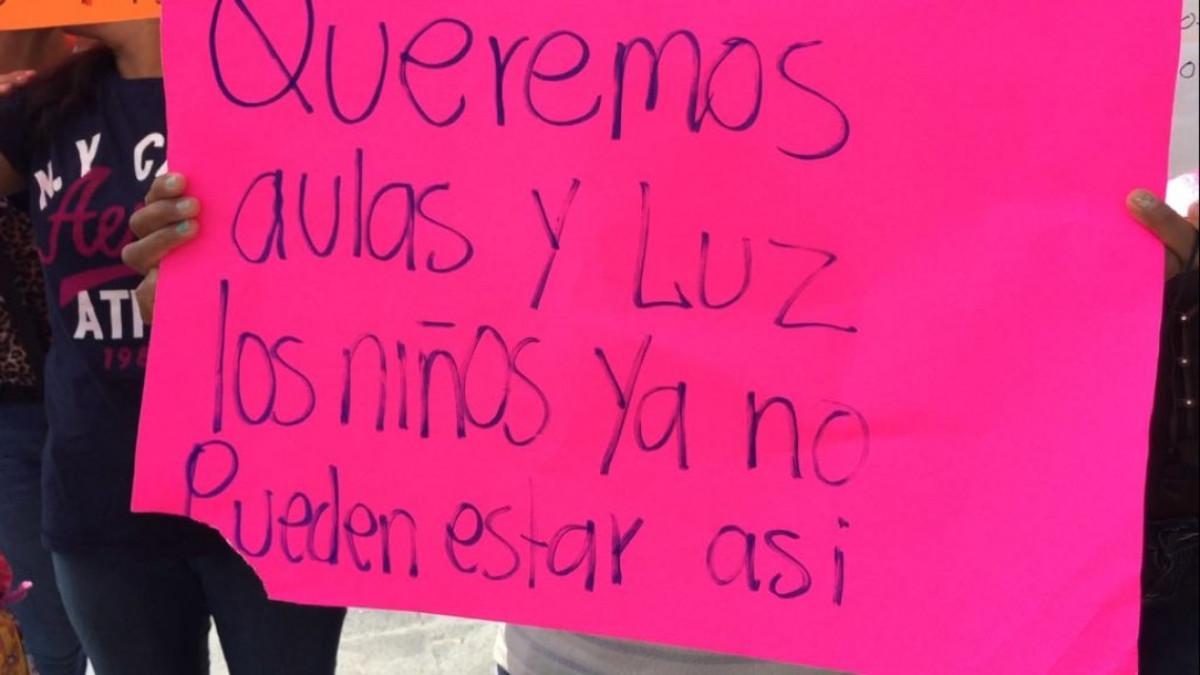 Queremos
aulas y Luz
los niños Ya no
Pueden estar asi
N. Y C
Ae
ATH
198